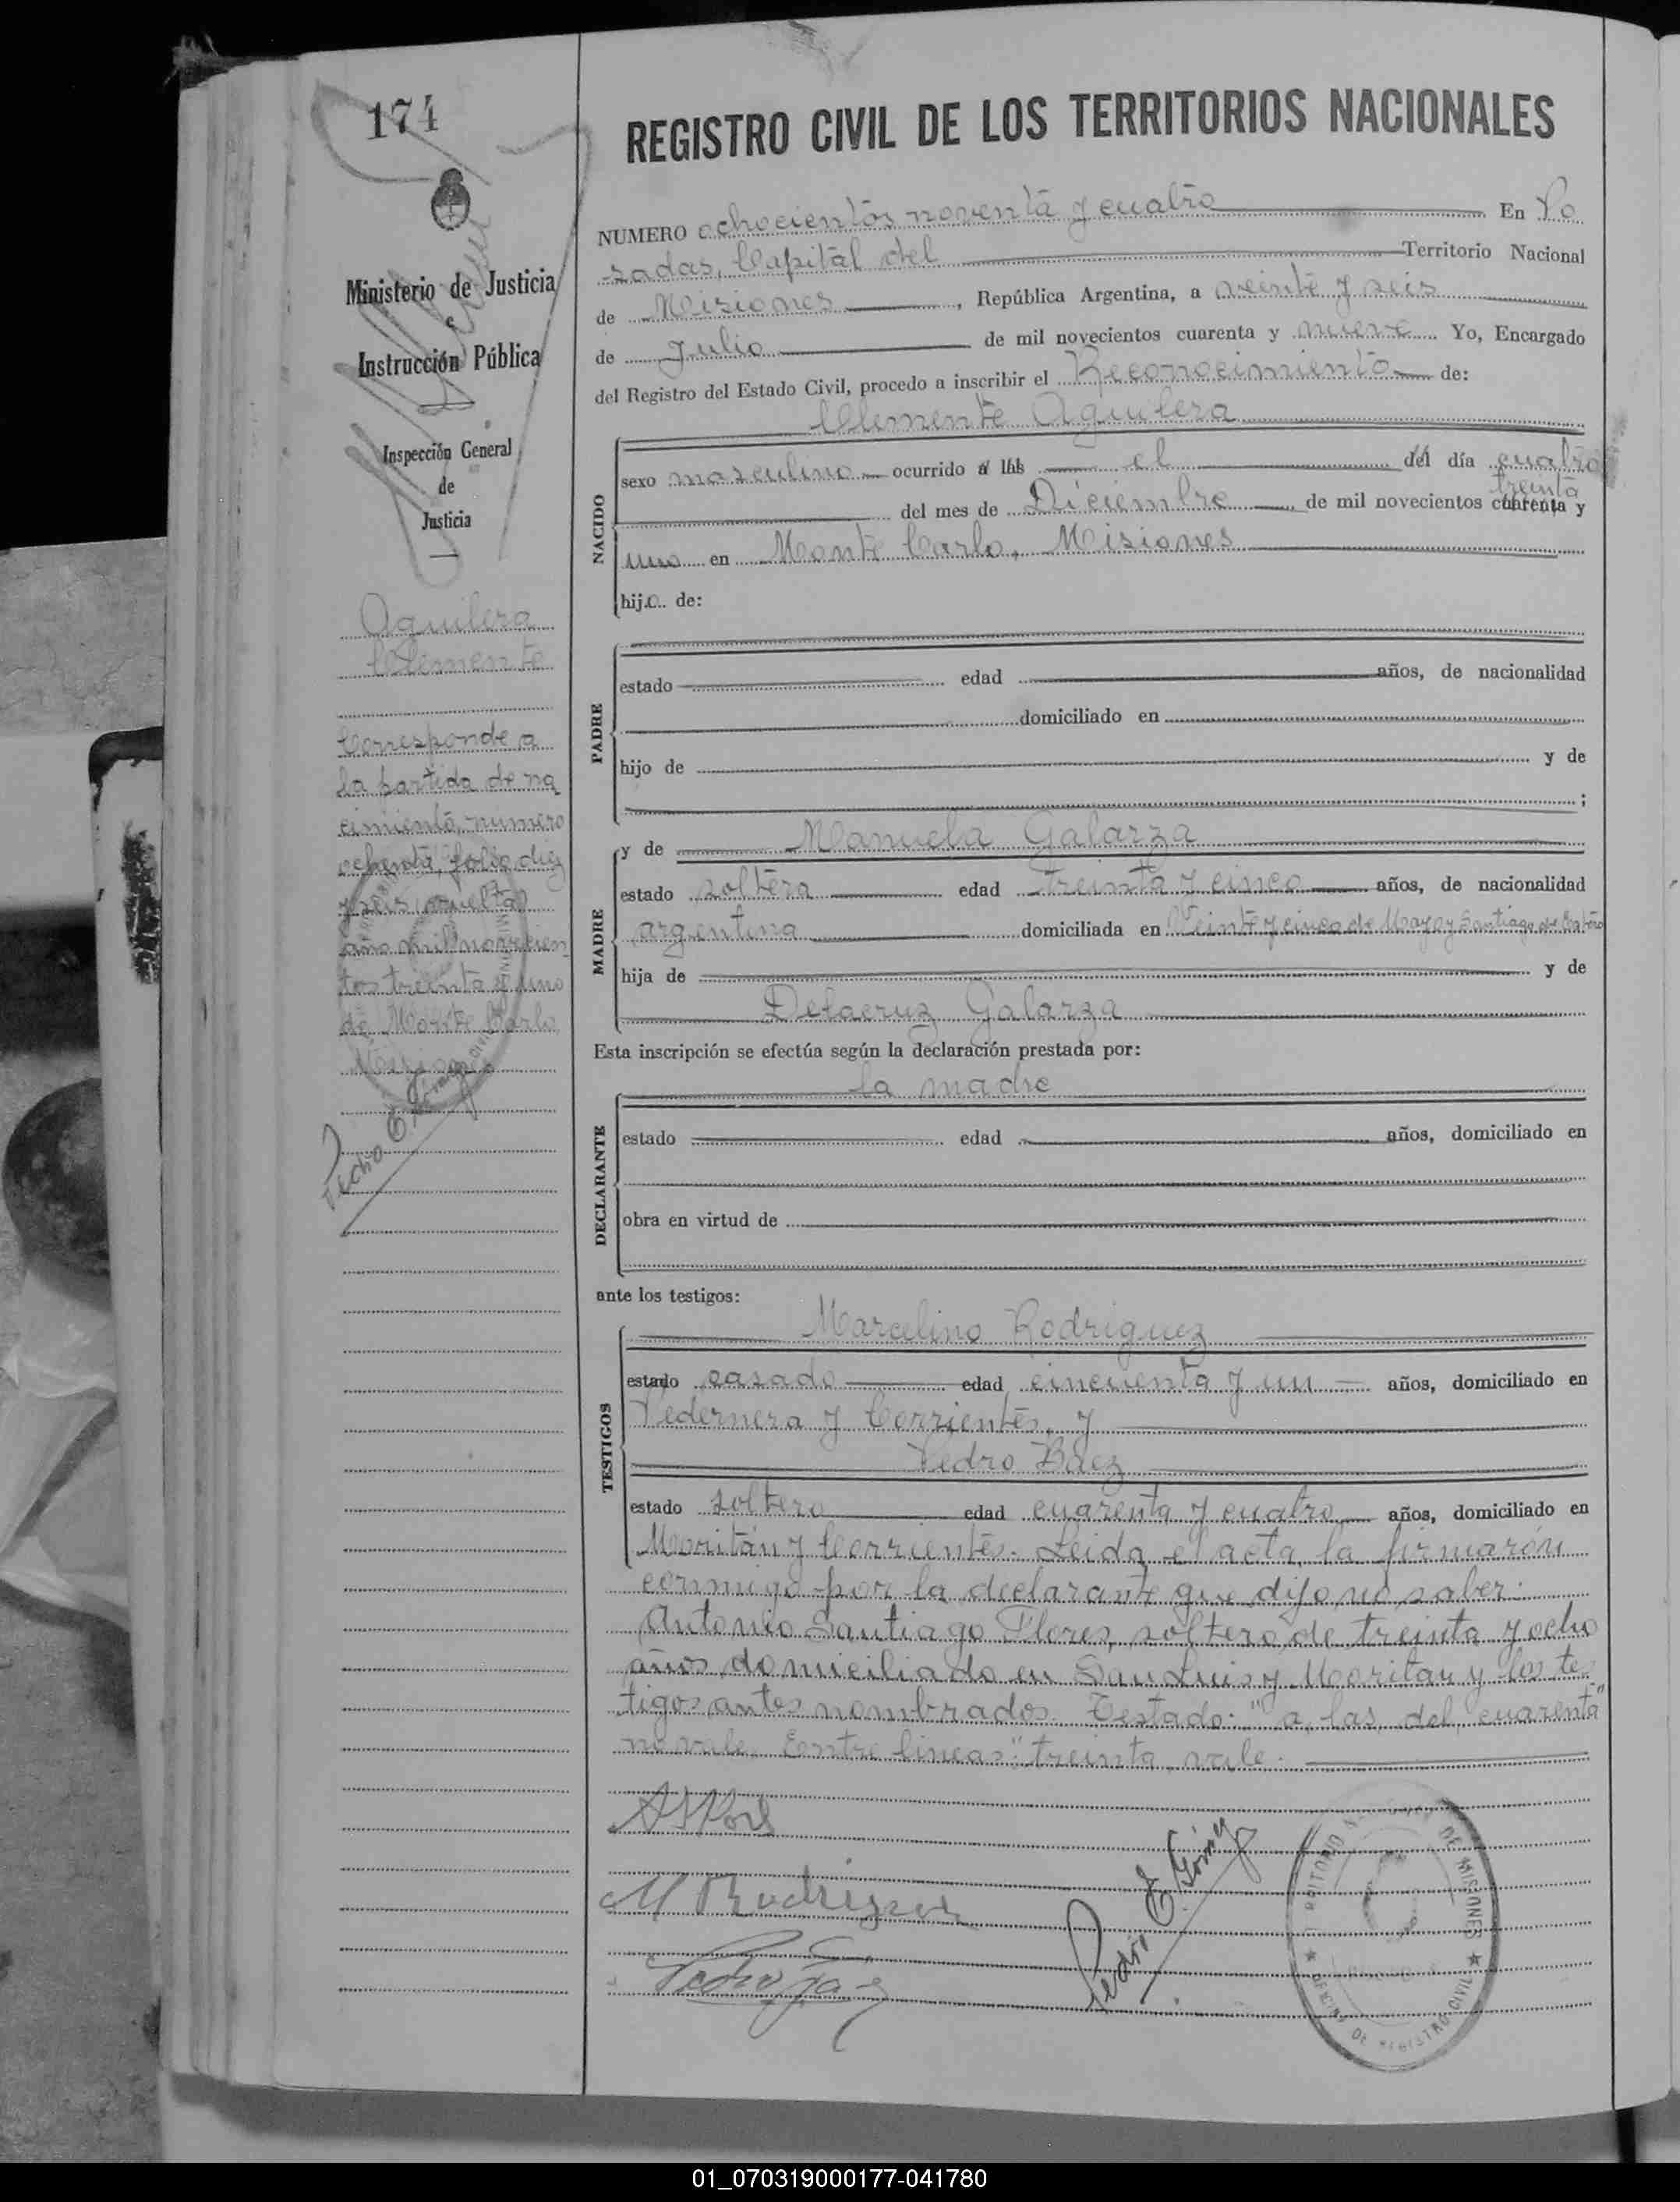 174
REGISTRO CIVIL DE LOS TERRITORIOS NACIONALES
Ministerio de Justicia
e
Instrucción Pública
Inspección General
de
Justicia
Aguilera
Clemente
Corresponde a
la partida de na
cimiento, numero
ochenta, folio diez
y seis vuelta
año mil novecien
tos treinta y uno
de Monte Carlo
Misiones
Pedro E. Gómez
NUMERO ochocientos noventa y cuatro En Po
sadas, Capital del Territorio Nacional
de Misiones, República Argentina, a veinte y seis
de Julio de mil novecientos cuarenta y nueve Yo, Encargado
del Registro del Estado Civil, procedo a inscribir el Reconocimiento de:
Clemente Aguilera
NACIDO
sexo masculino ocurrido a las el del día cuatro
treinta
del mes de Diciembre de mil novecientos cuarenta y
uno en Monte Carlo, Misiones
hijo de:
PADRE
estado edad años, de nacionalidad
domiciliado en
hijo de y de
;
MADRE
y de Manuela Galarza
estado soltera edad treinta y cinco años, de nacionalidad
argentina domiciliada en Veinte y cinco de Mayo y Santiago del Estero
hija de y de
Delacruz Galarza
Esta inscripción se efectúa según la declaración prestada por:
la madre
DECLARANTE
estado edad años, domiciliado en
obra en virtud de
ante los testigos:
TESTIGOS
Marcelino Rodriguez
estado casado edad cincuenta y un años, domiciliado en
Pedernera y Corrientes, y
Pedro Báez
estado soltero edad cuarenta y cuatro años, domiciliado en
Moritán y Corrientes. Leida el acta, la firmarón
conmigo por la declarante que dijo no saber:
Antonio Santiago Flores, soltero de treinta y ocho
años domiciliado en San Luis y Moritan y los tes
tigos antes nombrados. Testado: "a, las, del, cuarenta"
no vale. Entre lineas: "treinta, vale.
M Rodriguez
Pedro Baez
Pedro E. Gómez
TERRITORIO NACIONAL DE MISIONES
OFICINA DE REGISTRO CIVIL
01_070319000177-041780